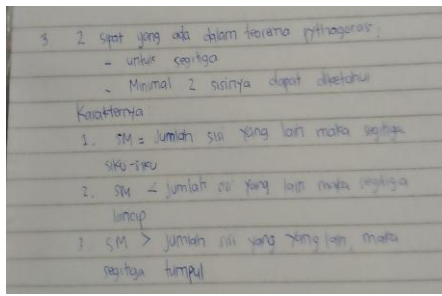 3 2 sifat yang ada dalam teorema pythagoras:
- untuk segitiga
- Minimal 2 sisinya dapat diketahui
Karakternya
1. SM = Jumlah sisi yang lain maka segitiga
siku-siku
2. SM < jumlah sisi yang lain maka segitiga
lancip
3. SM > jumlah sisi yang yang lain, maka
segitiga tumpul